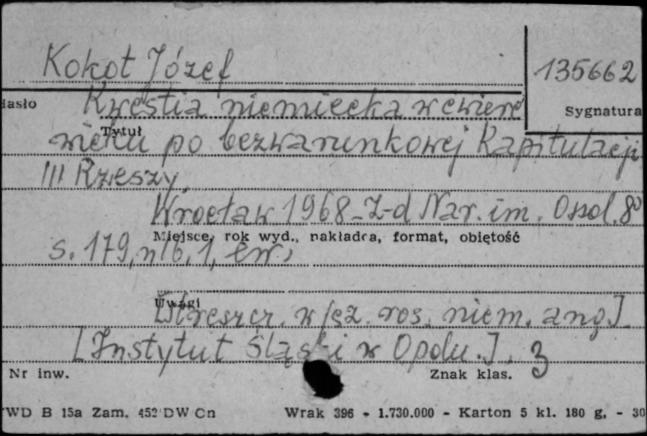 Kokot Józef
135662
iasło
Kwestia niemiecka w ćwierć
Sygnatura
Tytuł
wieku po bezwarunkowej Kapitulacji
III Rzeszy
Wrocław 1968 Z-d Nar. im. Ossol. 8°
Miejsce, rok wyd., nakładca, format, objętość
s. 179, nlb. 1, err.
Uwagi
[Streszcz. w jęz. ros. niem. ang.]
[Instytut Śląski w Opolu.]. 3
Nr inw.
Znak klas.
WD B 15a Zam. 452 DW Cn
Wrak 396 - 1.730.000 - Karton 5 kl. 180 g. - 30